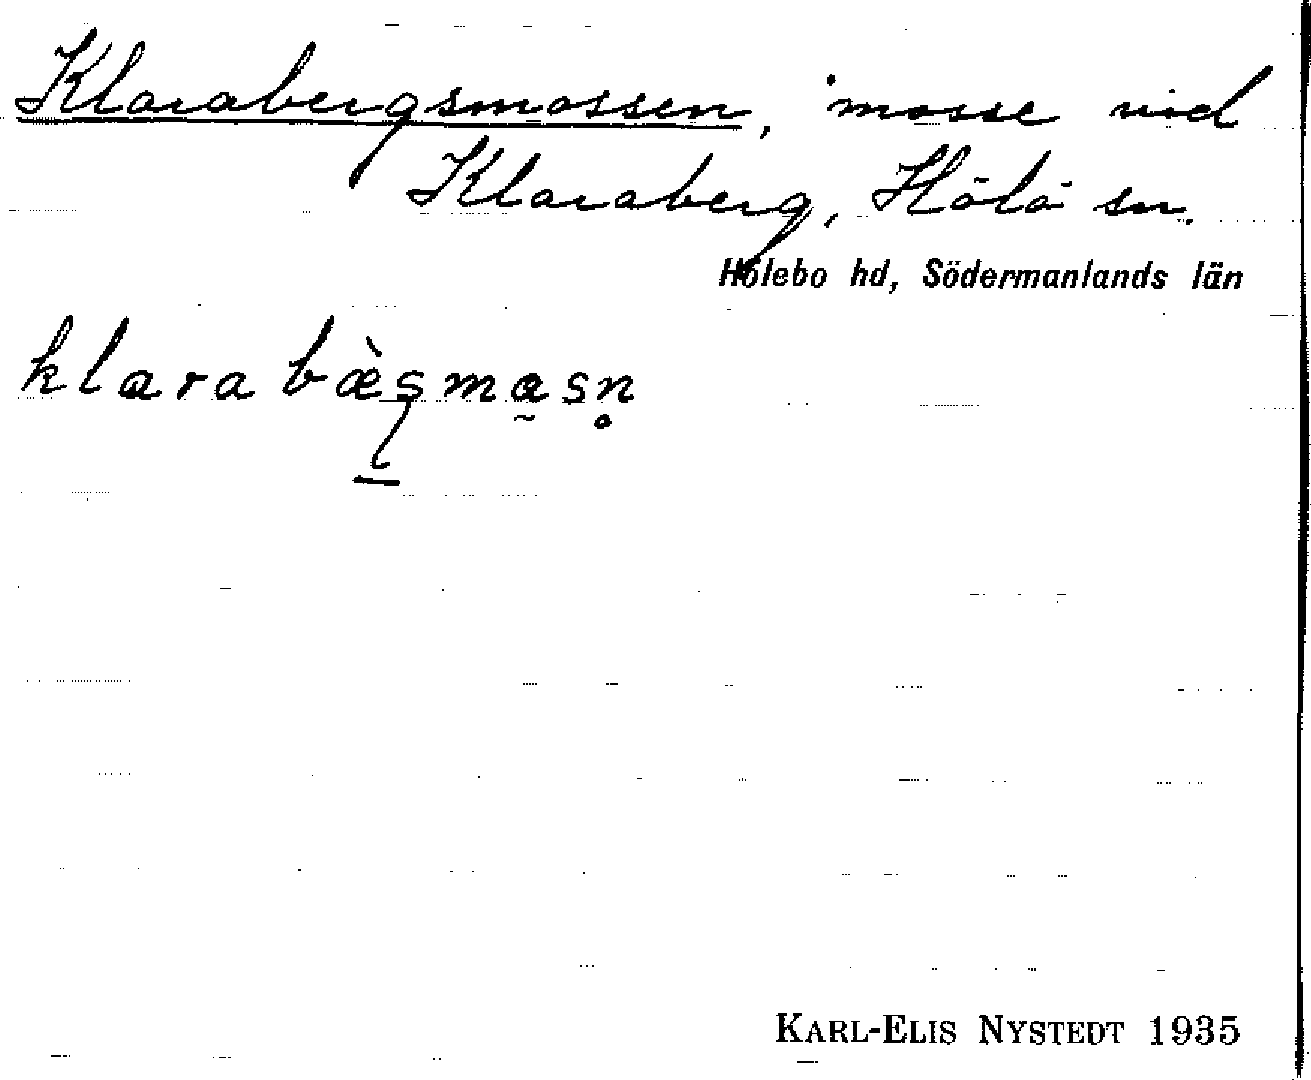 Klarabergsmossen, mosse vid
Klaraberg, Hölö sn.
Hölebo hd, Södermanlands län
KARL-ELIS NYSTEDT 1935